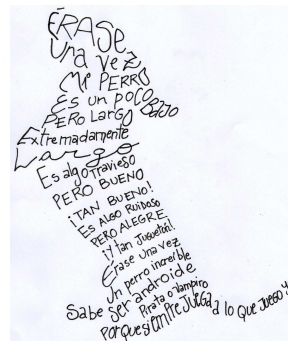 ÉRASE
Una vez
Mi PERRO
Es un poco BaJo
PERO LarGO
Extremadamente
Largo
Es algo Travieso
PERO BUENO
¡TAN BUENO!
ES ALGO RUIDOSO
PERO ALEGRE.
¡Y tan Juguetón!
Érase una vez
Un perro increíble
Sabe SER androide
Pirata o Vampiro
PorQue siEMPRE JUEGA a lo Que JUEGO Yo